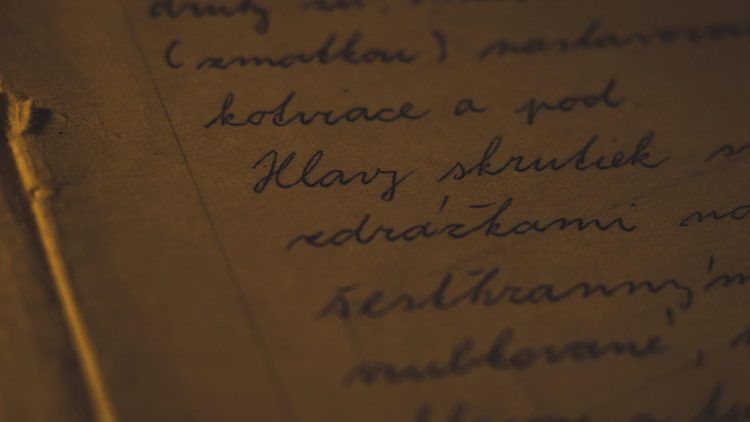 druhy
(zmatkou) nastavova
kotviace a pod.
Hlavy skrutiek
zdrážkami na
šesťhranným
vrubkované,